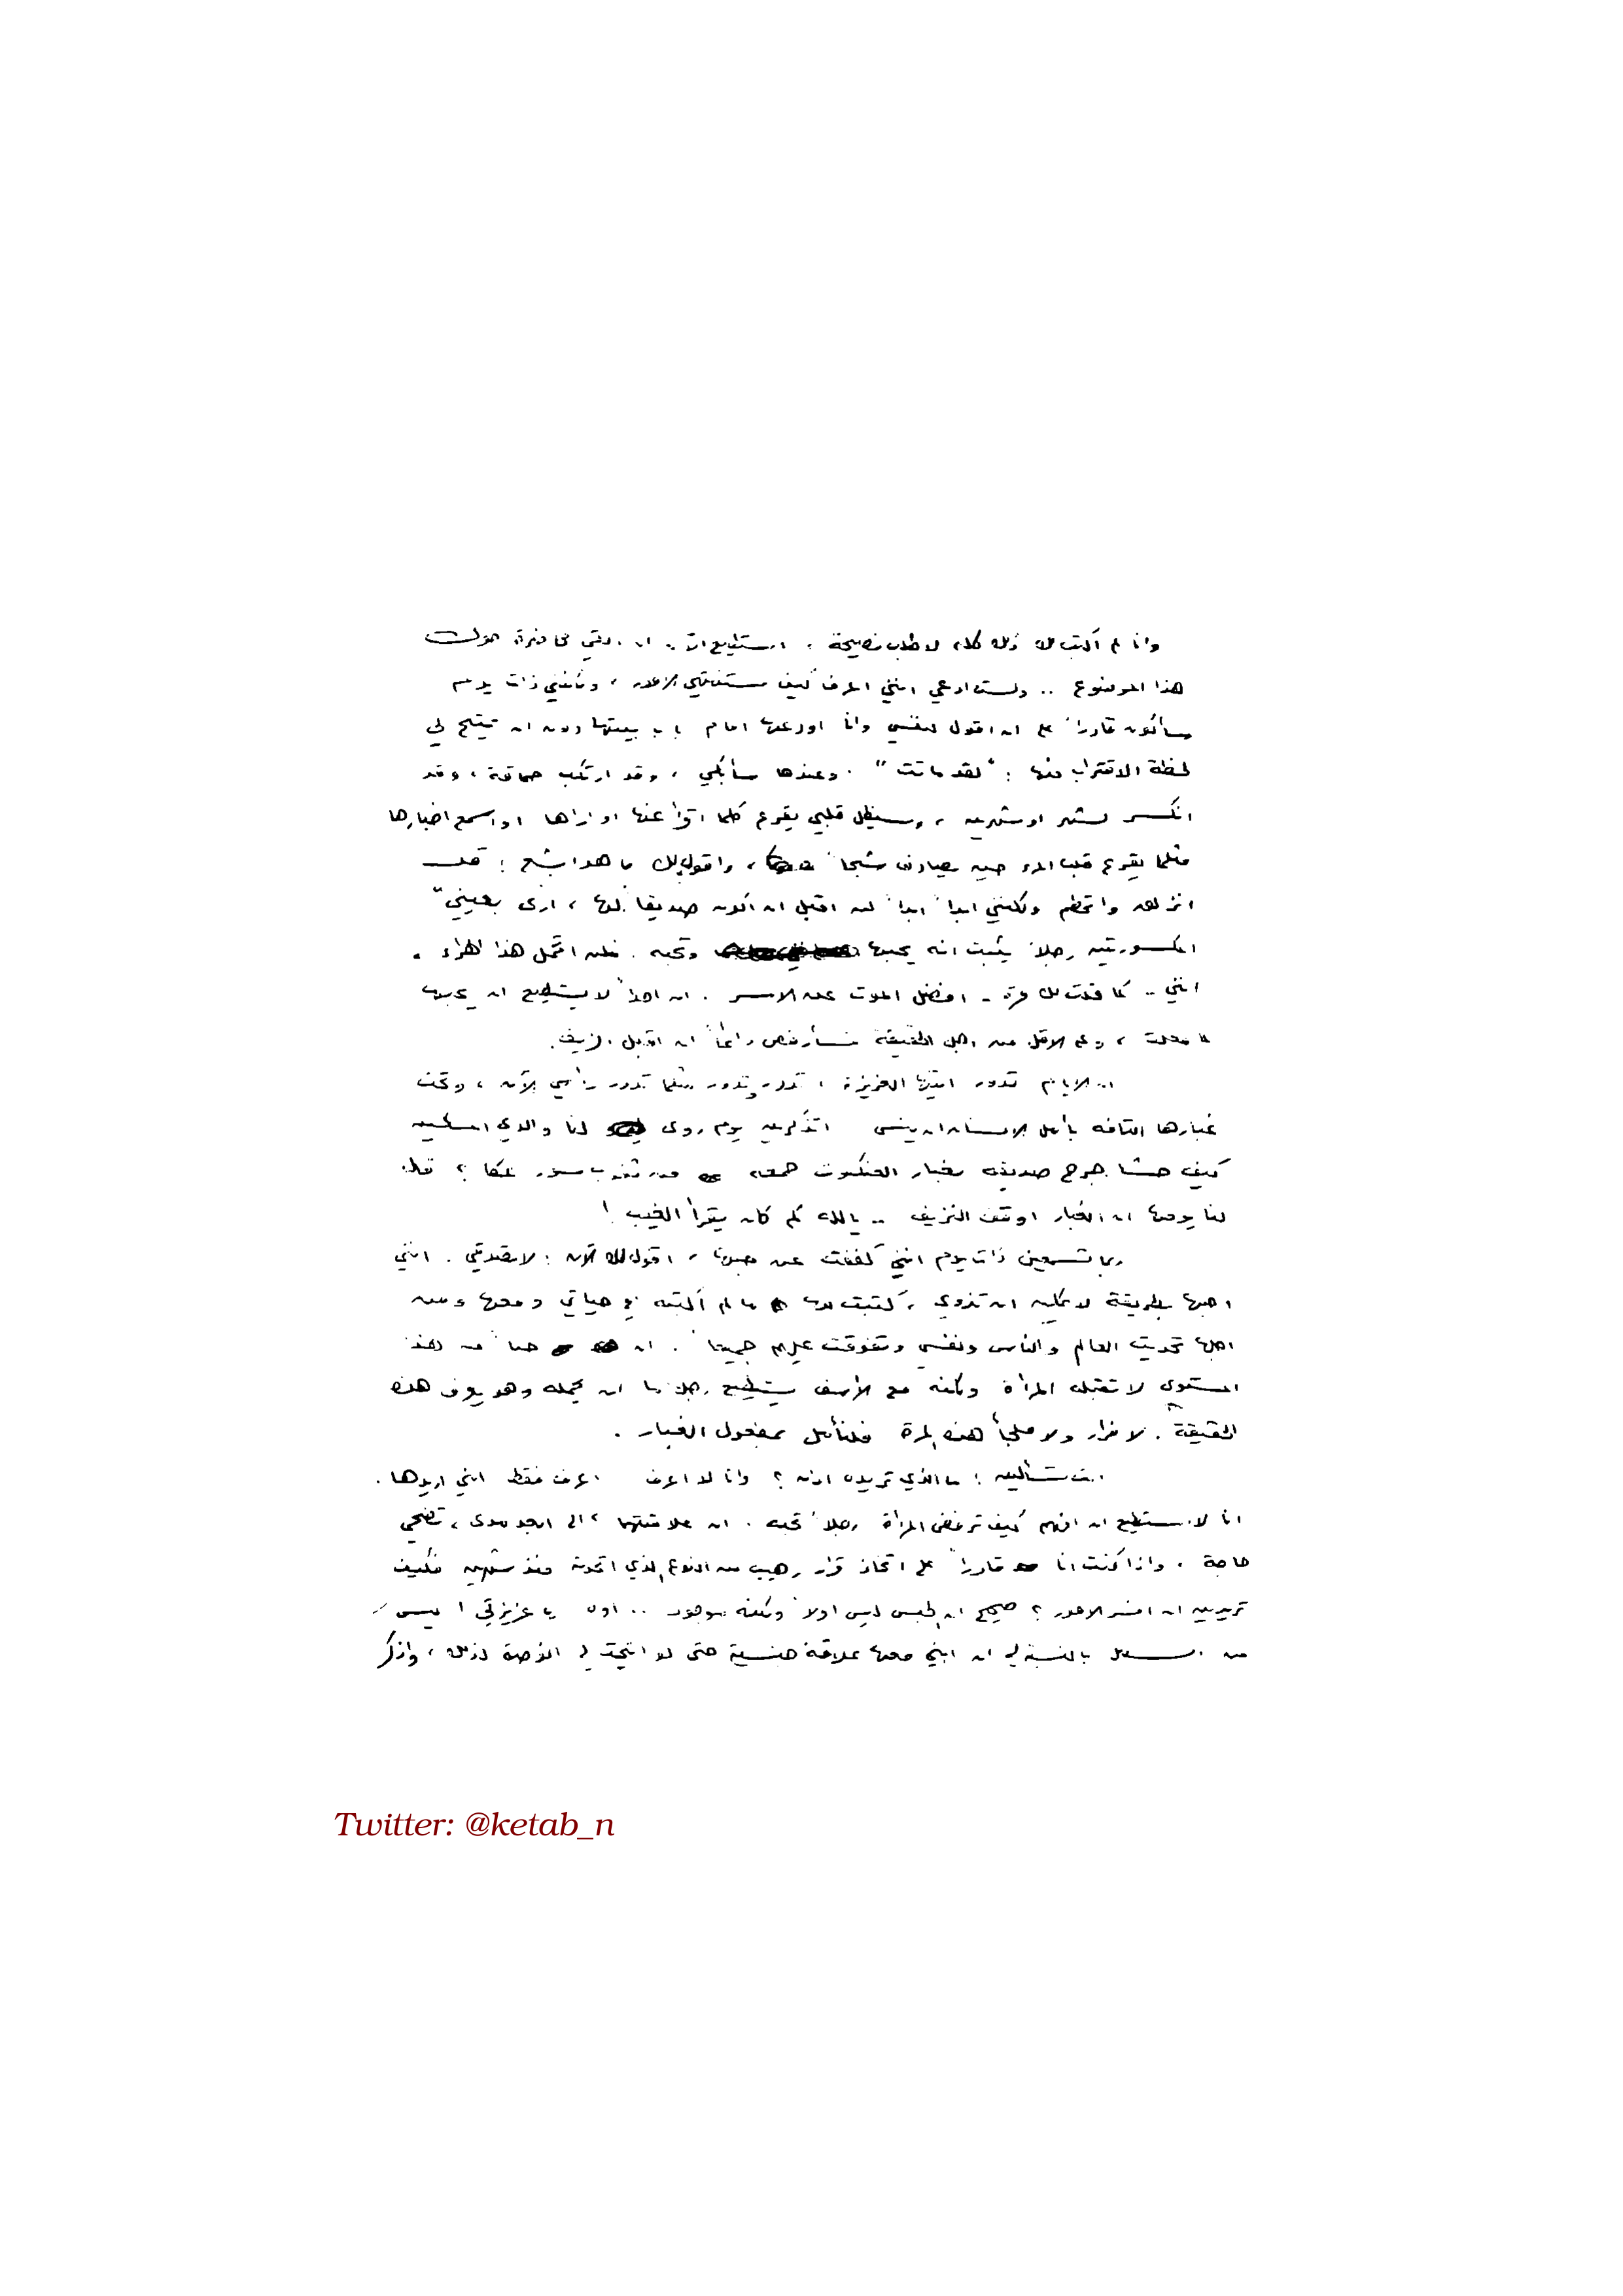 وانا لم أكتب لك ذلك كله لاطلب نصيحة ، استطيع ان القي محاضرة حول
هذا الموضوع .. ولست ادعي انني اعرف كيف ستنتهي الامور ، ولكنني ذات يوم
سأكون قادراً على ان اقول لنفسي وانا اودعها امام باب بيتها دون ان تتيح لي
لحظة الاقتراب منها : "لقد ماتت" . وعندها سأبكي ، وقد ارتكب حماقة ، وقد
انكسر لشهر او شهرين ، وسيظل قلبي يقرع كلما اقرأ عنها او اراها او اسمع اخبارها
مثلما يقرع قلب المرء حين يصادف شبحاً ، واقول لك ما هو ابشع : قد
انزلق واتحطم ولكنني ابداً ابداً لن اقبل ان اكون صديقاً لها ، ارى بعينيّ
المكسورتين رجلاً يثبت انه يحبها وتحبه . فلن احتمل هذا الهراء .
انني .. كما قلت لك مرة - افضل الموت على الاسر . ان احداً لا يستطيع ان يحبها
كما فعلت ، وعلى الاقل من اجل الحقيقة فسأرفض دائماً ان اقبل الزيف .
ان الايام تدور ايتها العزيزة ، تدور وتدور مثلما تدور رأسي الآن ، وتحت
غبارها التافه يأمل الانسان ان ينسى اتذكرين يوم روى لنا والدي المسكين
كيف حشا جرح صديقه بغبار العنكبوت جمعه من ثقوب سور عكا ؟ قال
لنا يومها ان الغبار اوقف النزيف .. يا الله كم كان يقرأ الغيب !
ربما تسمعين ذات يوم انني كففت عن حبها ، اقول لك الآن : لا تصدقي . انني
احبها بطريقة لا يمكن ان تذوي ، كتبت لها ما لم اكتبه في حياتي ومعها ومن
اجلها تحديت العالم والناس ونفسي وتفوقت عليهم جميعاً . ان حباً من هذا
المستوى لا تقبله المرأة ولكنه مع الأسف يستطيع رجل ما ان يحمله وهو يعرف هذه
الحقيقة . لا فرار ولا ملجأ هذه المرة فلنأمل بمفعول الغبار .
انت تسألين : ما الذي تريده اذن ؟ وانا لا اعرف اعرف فقط انني اريدها .
انا لا استطيع ان افهم كيف ترفض امرأة رجلاً تحبه . ان علاقتها ، الى ابعد مدى ، تضحي
حاجة . واذا كنت انا قادراً على اتخاذ قرار رهيب من النوع الذي اتخذته منذ شهرين فكيف
تريدين ان افسر الامور ؟ صحيح ان الجنس ليس اولاً ولكنه موجود .. اوه يا عزيزتي ! ليس
من السهل بالنسبة لي ان ابني معها علاقة جنسية حتى لو اتيحت لي الفرصة لذلك ، واذكر
Twitter: @ketab_n